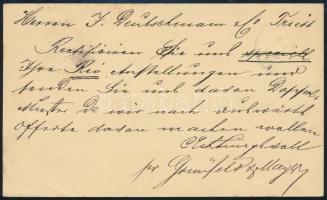 Herren J. Deutschmann & Co Triest
Rectificiren Sie uns speciell
Ihre Rio Anstellungen und
senden Sie uns davon Doppel-
Muster da wir nach auswärts
Offerte davon machen wollen
Achtungsvoll
pr Grünfeld & Mayer